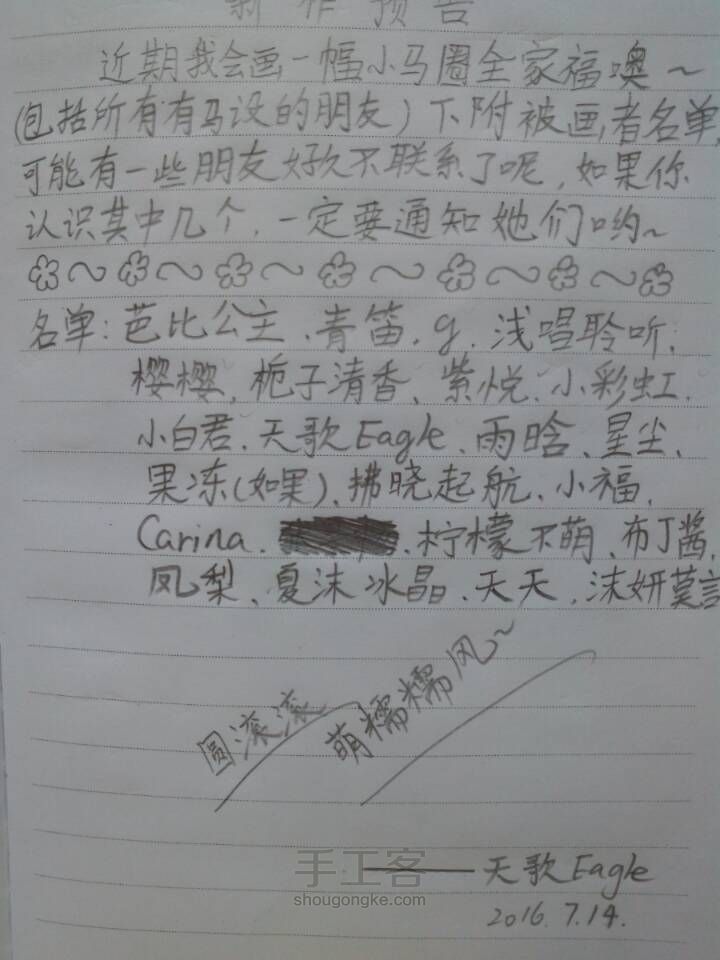 新作预告
近期我会画一幅小马圈全家福噢~
(包括所有有马设的朋友)下附被画者名单,
可能有一些朋友好久不联系了呢,如果你
认识其中几个,一定要通知她们哟~
名单:芭比公主、青笛、g、浅唱聆听、
樱樱、栀子清香、紫悦、小彩虹、
小白君、天歌Eagle、雨晗、星尘、
果冻(如果)、拂晓起航、小福、
Carina、柠檬不萌、布丁酱、
凤梨、夏沫冰晶、天天、沫妍莫言
圆滚滚
萌糯糯风~
——天歌Eagle
2016.7.14.
手工客
shougongke.com